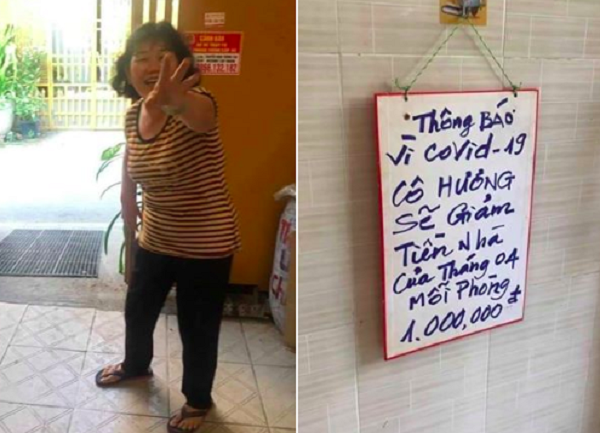 Thông Báo
Vì Covid-19
Cô HƯỜNG
SẼ Giảm
Tiền Nhà
Của Tháng 04
Mỗi Phòng
1.000,000 đ